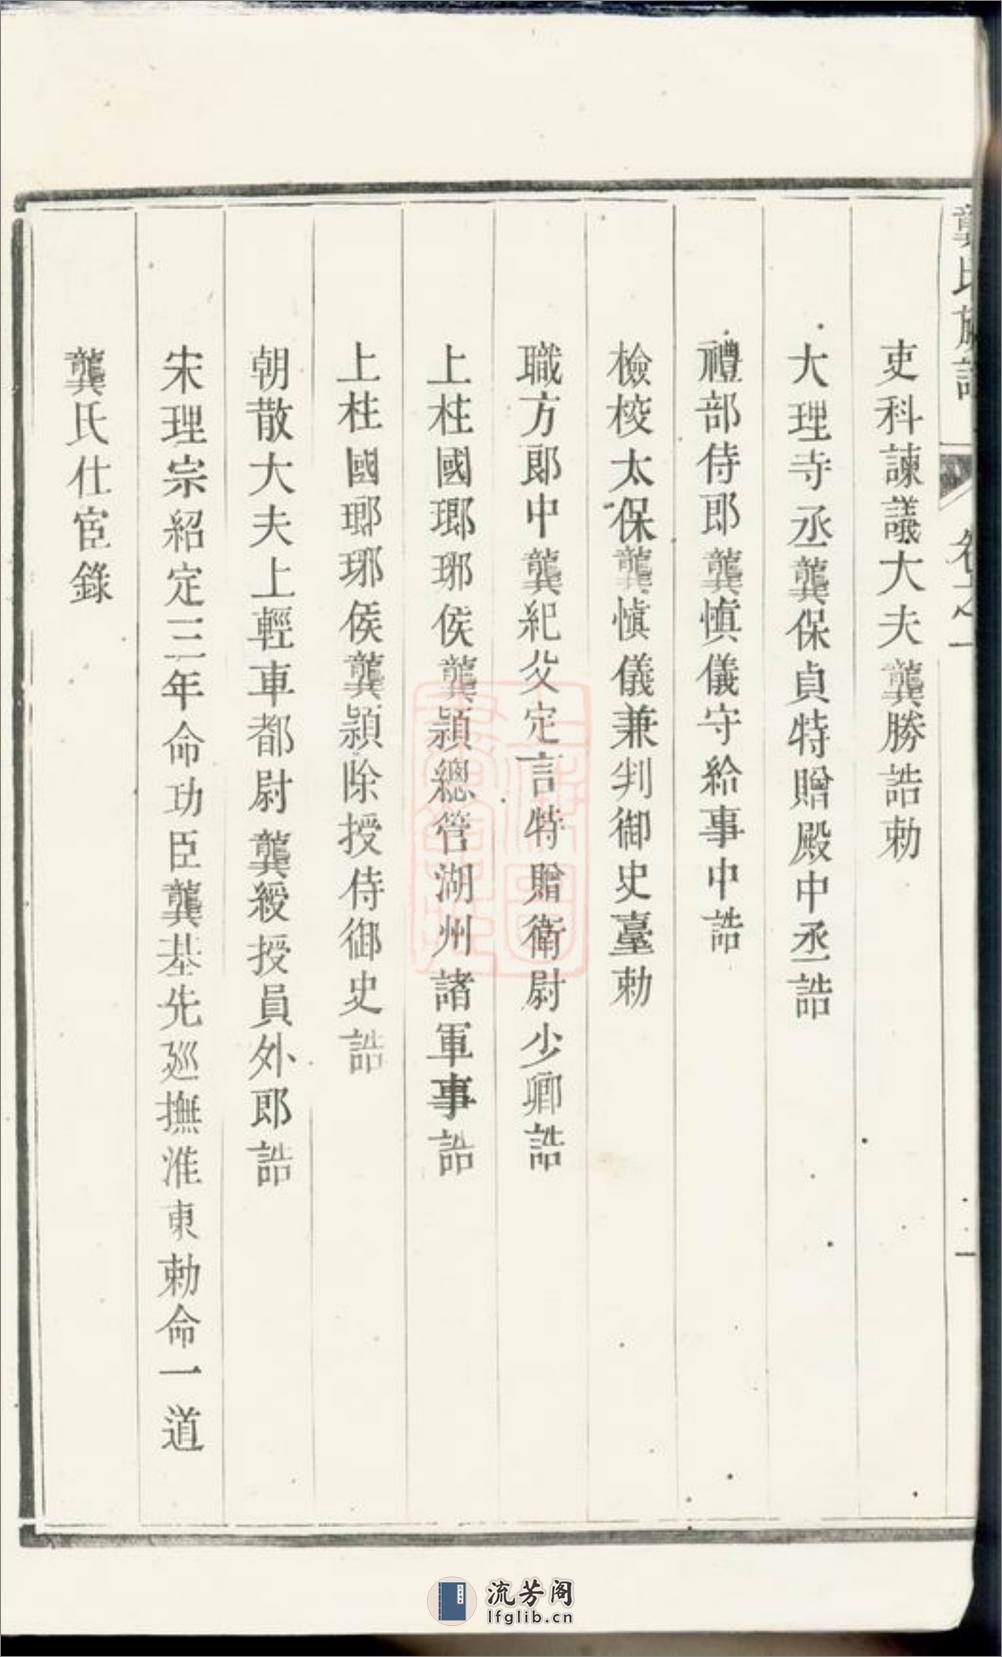 龔氏族譜 卷之一 一
吏科諫議大夫龔勝誥勅
大理寺丞龔保貞特贈殿中丞誥
禮部侍郎龔慎儀守給事中誥
檢校太保龔慎儀兼判御史臺勅
職方郎中龔紀父定言特贈衛尉少卿誥
上柱國瑯琊侯龔頴總管湖州諸軍事誥
上柱國瑯琊侯龔頴除授侍御史誥
朝散大夫上輕車都尉龔綬授員外郎誥
宋理宗紹定三年命功臣龔基先廵撫淮東勅命一道
龔氏仕宦錄
流芳阁
lfglib.cn